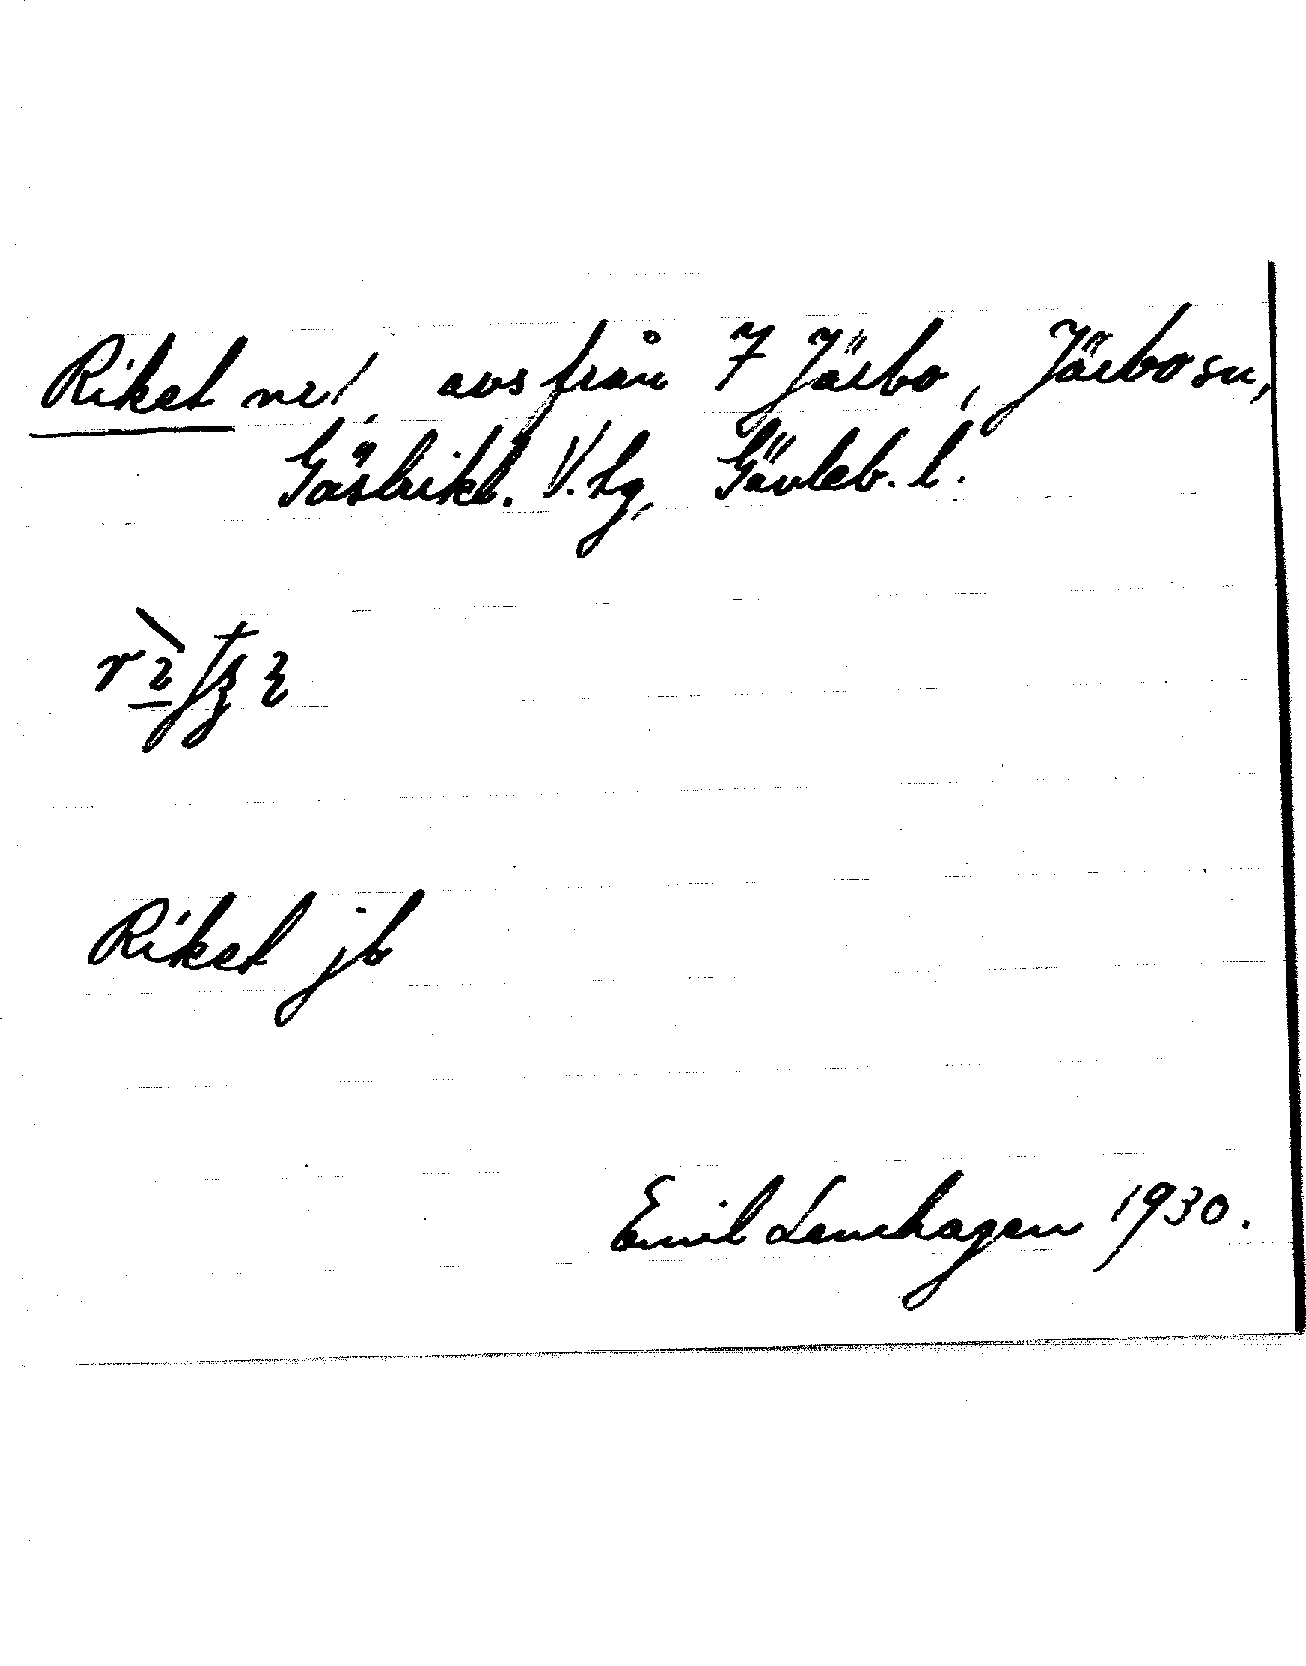 Riket nr 1, avs från 7 Järbo, Järbo sn,
Gästrikl. V. tg, Gävleb. l.
Riket jb
Emil Lenehagen 1930.